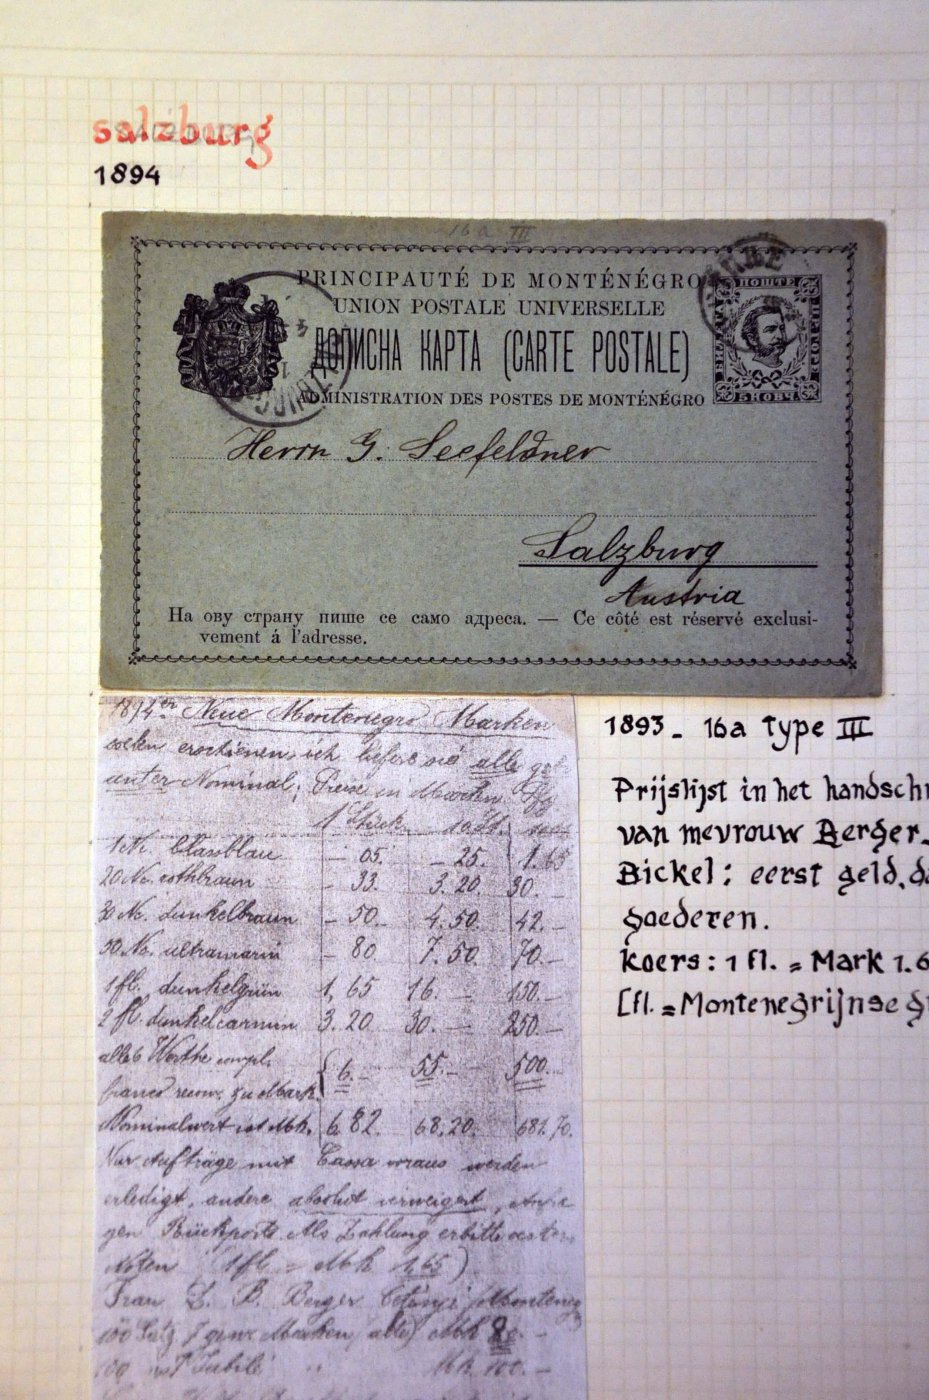 salzburg
1894
16a III
PRINCIPAUTÉ DE MONTÉNÉGRO
UNION POSTALE UNIVERSELLE
ДОПИСНА КАРТА (CARTE POSTALE)
ADMINISTRATION DES POSTES DE MONTÉNÉGRO
ПОШТЕ
5 НОВЧ
Herrn G. Seefeldner
Salzburg
Austria
На ову страну пише се само адреса. — Ce côté est réservé exclusi-
vement á l'adresse.
1893 - 16a Type III
Prijslijst in het handschr
van mevrouw Berger-
Bickel: eerst geld, d
goederen.
koers: 1 fl. = Mark 1.6
[fl. = Montenegrijnse g
1894er Neue Montenegro Marken
soeben erschienen, ich liefere sie alle
unter Nominal; Preise in Marken
1 Stück 10 St.
1 N. blassblau - 05. - 25. 1.65
20 N. rothbraun - 33. 3.20 30.-
30 N. dunkelbraun - 50. 4.50. 42.-
50 N. ultramarin - 80 7.50. 70.-
1 fl. dunkelgrün 1,65 16.- 150.-
2 fl. dunkelcarmin 3.20 30.- 250.-
alle 6 Werthe compl.
franco recom. zu Mark. 6.- 55.- 500.-
Nominalwert ist Mk. 6,82. 68,20. 681.70.
Nur Aufträge mit Cassa voraus werden
erledigt, andere absolut verweigert,
gen Rückporto. Als Zahlung erbitte
Noten (1 fl. = Mk 1,65)
Frau L. B. Berger Cetinje Monteneg
100 Satz 7 ganz Marken, alle) Mk
Mk. 100.-